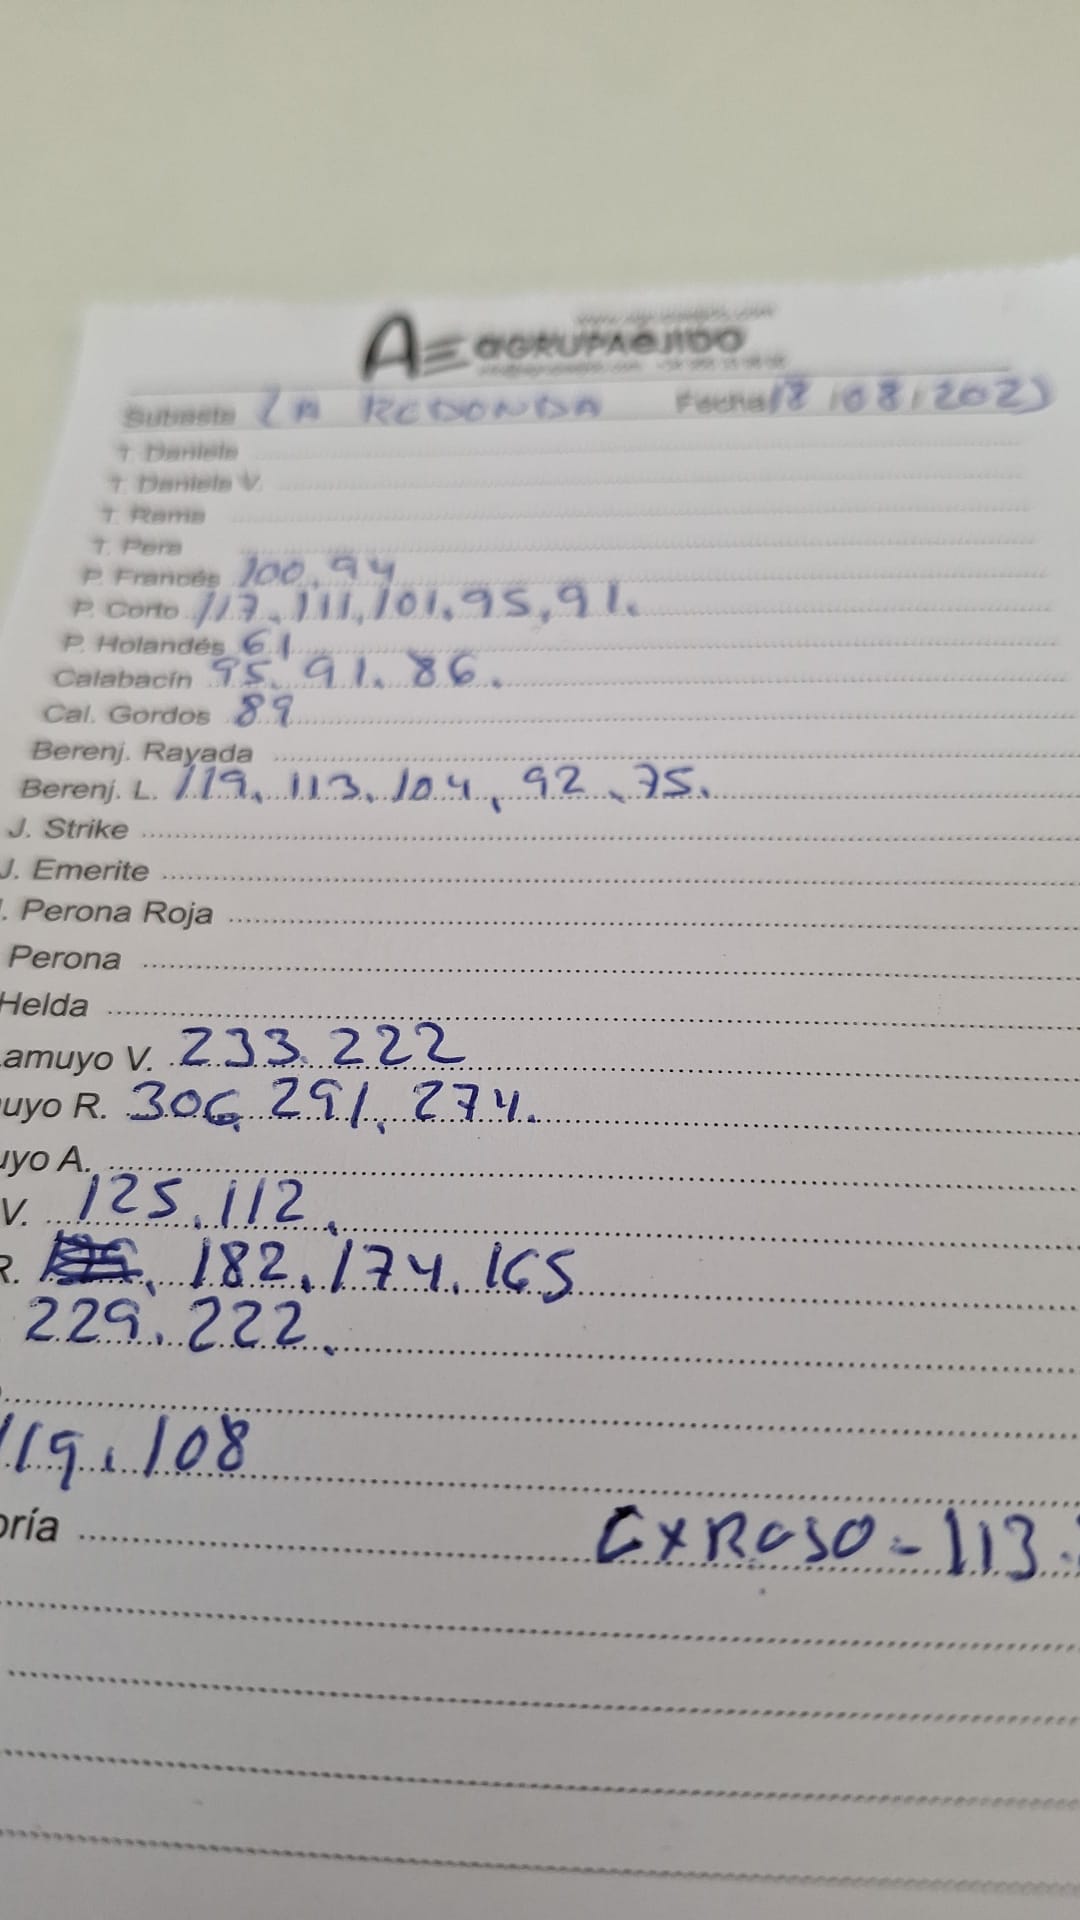 AE AGRUPAEJIDO
Subasta LA REDONDA Fecha 18/08/2023
T. Daniela
T. Daniela V.
T. Rama
T. Pera
P. Francés 100, 94
P. Corto 117, 111, 101, 95, 91.
P. Holandés 61
Calabacín 95, 91, 86.
Cal. Gordos 89
Berenj. Rayada
Berenj. L. 119, 113, 104, 92, 75.
J. Strike
J. Emerite
. Perona Roja
Perona
Helda
amuyo V. 233, 222
uyo R. 306, 291, 274.
uyo A.
V. 125, 112,
R. 182, 174, 165
229, 222,
119, 108
oría
EXRGSO - 113.